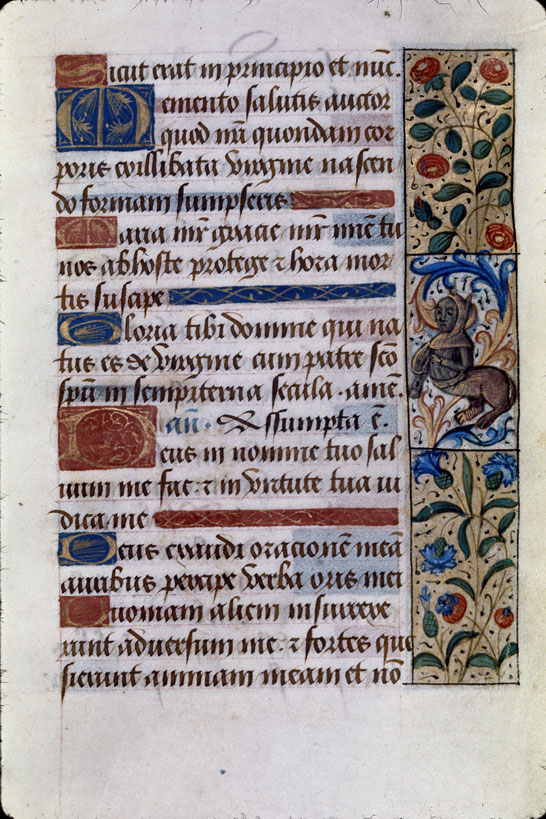 Sicut erat in principio et nūc.
Memento salutis auctor
quod nr̄i quondam cor
poris ex illibata virgine nascen
do formam sumpseris
Maria mr̄ gracie mr̄ mīe tu
nos ab hoste protege ⁊ hora mor
tis suscipe
Gloria tibi domine qui na
tus es de virgine cum patre scō
spū in sempiterna secula . amē.
añ . Assumpta ē.
Deus in nomine tuo sal
uum me fac ⁊ in virtute tua iu
dica me
Deus exaudi orationē meā
auribus percipe verba oris mei
Quoniam alieni insurrexe
runt adversum me . ⁊ fortes que
sierunt animam meam et nō